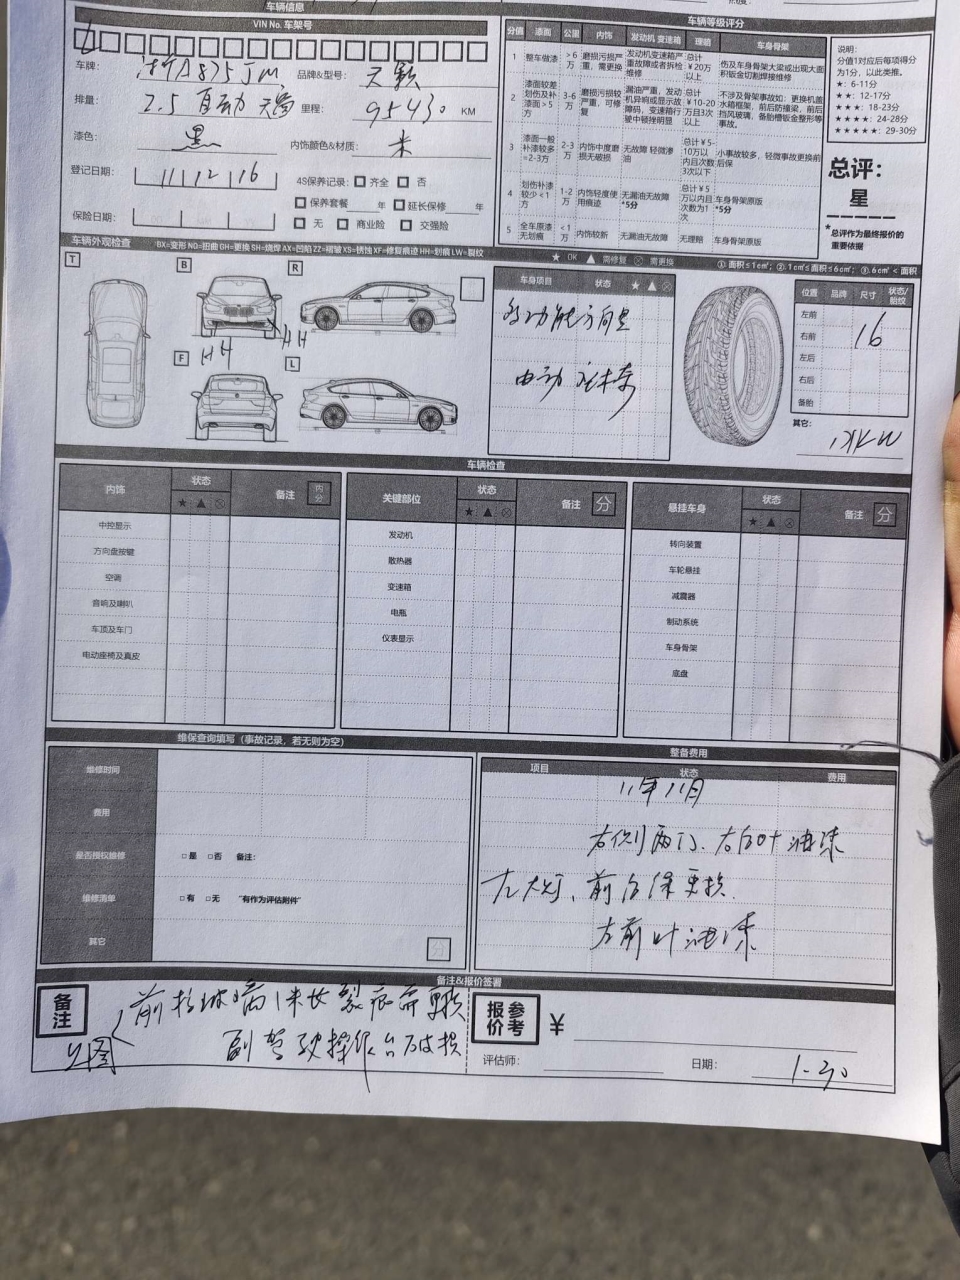 车辆信息
VIN No. 车架号
车牌: 浙A875JM 品牌&型号: 天籁
排量: 2.5 自动 里程: 95430 KM
漆色: 黑 内饰颜色&材质: 米
登记日期: 11 12 16 4S保养记录: □ 齐全 □ 否
□ 保养套餐 年 □ 延长保修 年
保险日期: □ 无 □ 商业险 □ 交强险
车辆等级评分
分值 漆面 公里 内饰 发动机 变速箱 理赔 车身骨架
1 整车做漆 >6万 磨损污损严重，需更换 发动机变速箱严重故障或者拆检维修 总计￥20万以上 伤及车身骨架大梁或出现大面积钣金切割焊接维修
2 漆面较差划伤及补漆面>5 3-6万 磨损污损较严重，可修复 漏油严重，发动机异响或显示故障码，变速箱行驶中顿挫明显 总计￥10-20万且3次以上 不涉及骨架事故如：更换机盖水箱框架，前后防撞梁，前后挡风玻璃，备胎槽钣金整形等事故。
3 漆面一般补漆较多=2-3方 2-3万 内饰中度磨损无破损 无故障 轻微渗油 总计￥5-10万以内且次数3次以下 小事故较多，轻微事故更换前后保
4 划伤补漆较少<1方 1-2万 内饰轻度使用痕迹 无漏油无故障 *5分 总计￥5万以内且次数为1次 车身骨架原版 *5分
5 全车原漆无划痕 <1万 内饰较新 无漏油无故障 无理赔 车身骨架原版
说明:
分值1对应后每项得分为1分，以此类推。
★: 6-11分
★★: 12-17分
★★★: 18-23分
★★★★: 24-28分
★★★★★: 29-30分
总评:
星
*总评作为最终报价的重要依据
车辆外观检查 *BX=变形 NQ=扭曲 GH=更换 SH=烧焊 AX=凹陷 ZZ=褶皱 XS=锈蚀 XF=修复痕迹 HH=划痕 LW=裂纹 ★ OK ▲ 需修复 ⊗ 需更换 ①: 面积≤1c㎡; ②. 1c㎡≤面积≤6c㎡; ③.6c㎡ < 面积
T B R
HH
F HH L
车身项目 状态 ★ ▲ ⊗
多功能方向盘
电动
位置 品牌 尺寸 状态/胎纹
左前
右前 16
左后
右后
备胎
其它:
车辆检查
内饰 状态 备注 内分
★ ▲ ⊗
中控显示
方向盘按键
空调
音响及喇叭
车顶及车门
电动座椅及真皮
关键部位 状态 备注 分
★ ▲ ⊗
发动机
散热器
变速箱
电瓶
仪表显示
悬挂车身 状态 备注 分
★ ▲ ⊗
转向装置
车轮悬挂
减震器
制动系统
车身骨架
底盘
维保查询填写（事故记录，若无则为空）
维修时间
费用
是否授权维修 □ 是 □否 备注:
维修清单 □ 有 □ 无 "有作为评估附件"
其它 分
整备费用
项目 状态 费用
11年11月
右侧两门、右后叶油漆
左大灯、前后保更换
左前叶油漆
备注&报价签署
备注 前挡玻璃1米长裂痕需更换
见图 副驾驶操纵台破损
报价参考 ￥
评估师: 日期: 1-30